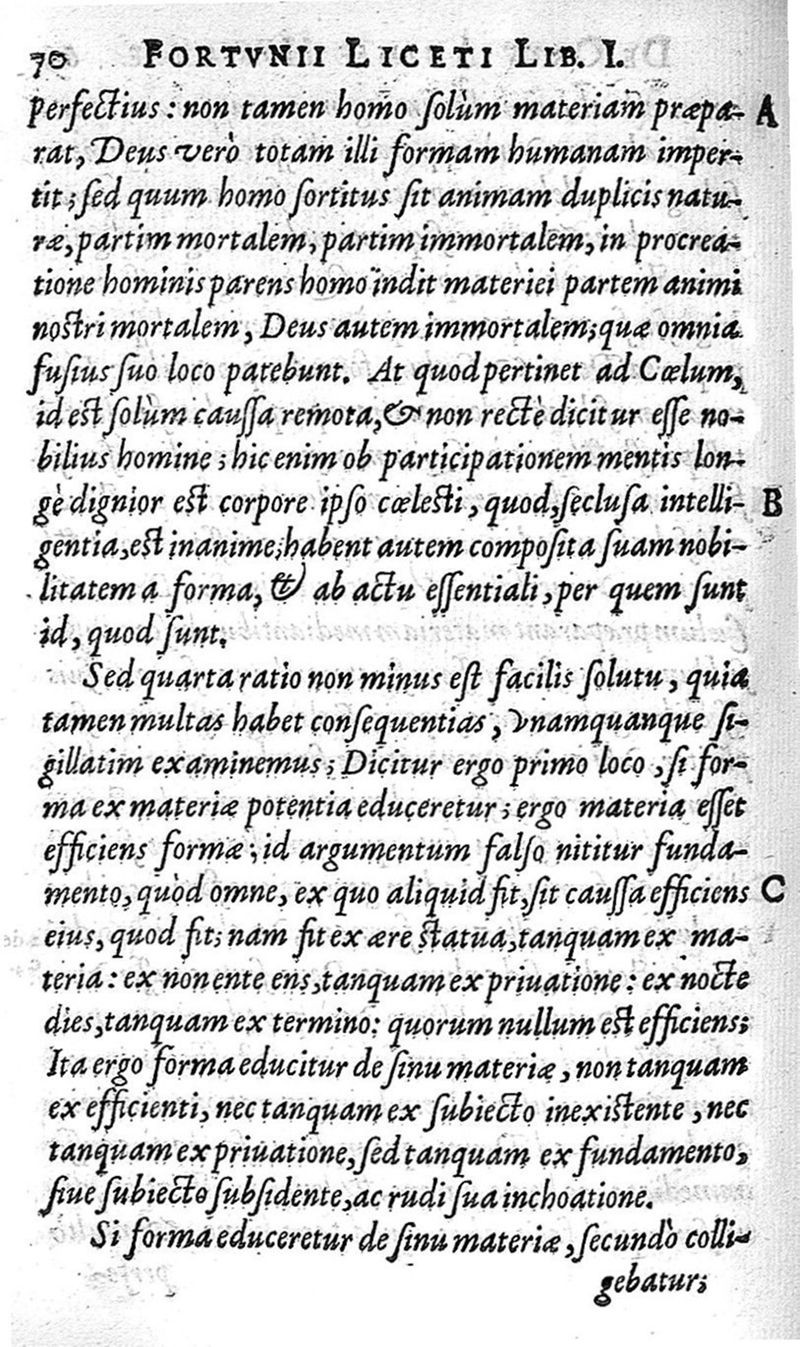 70 FORTVNII LICETI LIB. I.
perfectius: non tamen homo solùm materiam præpa- A
rat, Deus verò totam illi formam humanam imper-
tit; sed quum homo sortitus sit animam duplicis natu-
ræ, partim mortalem, partim immortalem, in procrea-
tione hominis parens homo indit materiei partem animi
nostri mortalem, Deus autem immortalem; quæ omnia
fusius suo loco patebunt. At quod pertinet ad Cœlum,
id est solùm caussa remota, & non rectè dicitur esse no-
bilius homine; hic enim ob participationem mentis lon-
gè dignior est corpore ipso cœlesti, quod, seclusa intelli- B
gentia, est inanime; habent autem composita suam nobi-
litatem a forma, & ab actu essentiali, per quem sunt
id, quod sunt.
Sed quarta ratio non minus est facilis solutu, quia
tamen multas habet consequentias, vnamquanque si-
gillatim examinemus; Dicitur ergo primo loco, si for-
ma ex materiæ potentia educeretur; ergo materia esset
efficiens formæ; id argumentum falso nititur funda-
mento, quòd omne, ex quo aliquid fit, sit caussa efficiens C
eius, quod fit; nam fit ex ære statua, tanquam ex ma-
teria: ex non ente ens, tanquam ex priuatione: ex nocte
dies, tanquam ex termino: quorum nullum est efficiens;
Ita ergo forma educitur de sinu materiæ, non tanquam
ex efficienti, nec tanquam ex subiecto inexistente, nec
tanquam ex priuatione, sed tanquam ex fundamento,
siue subiecto subsidente, ac rudi sua inchoatione.
Si forma educeretur de sinu materiæ, secundò colli-
gebatur;